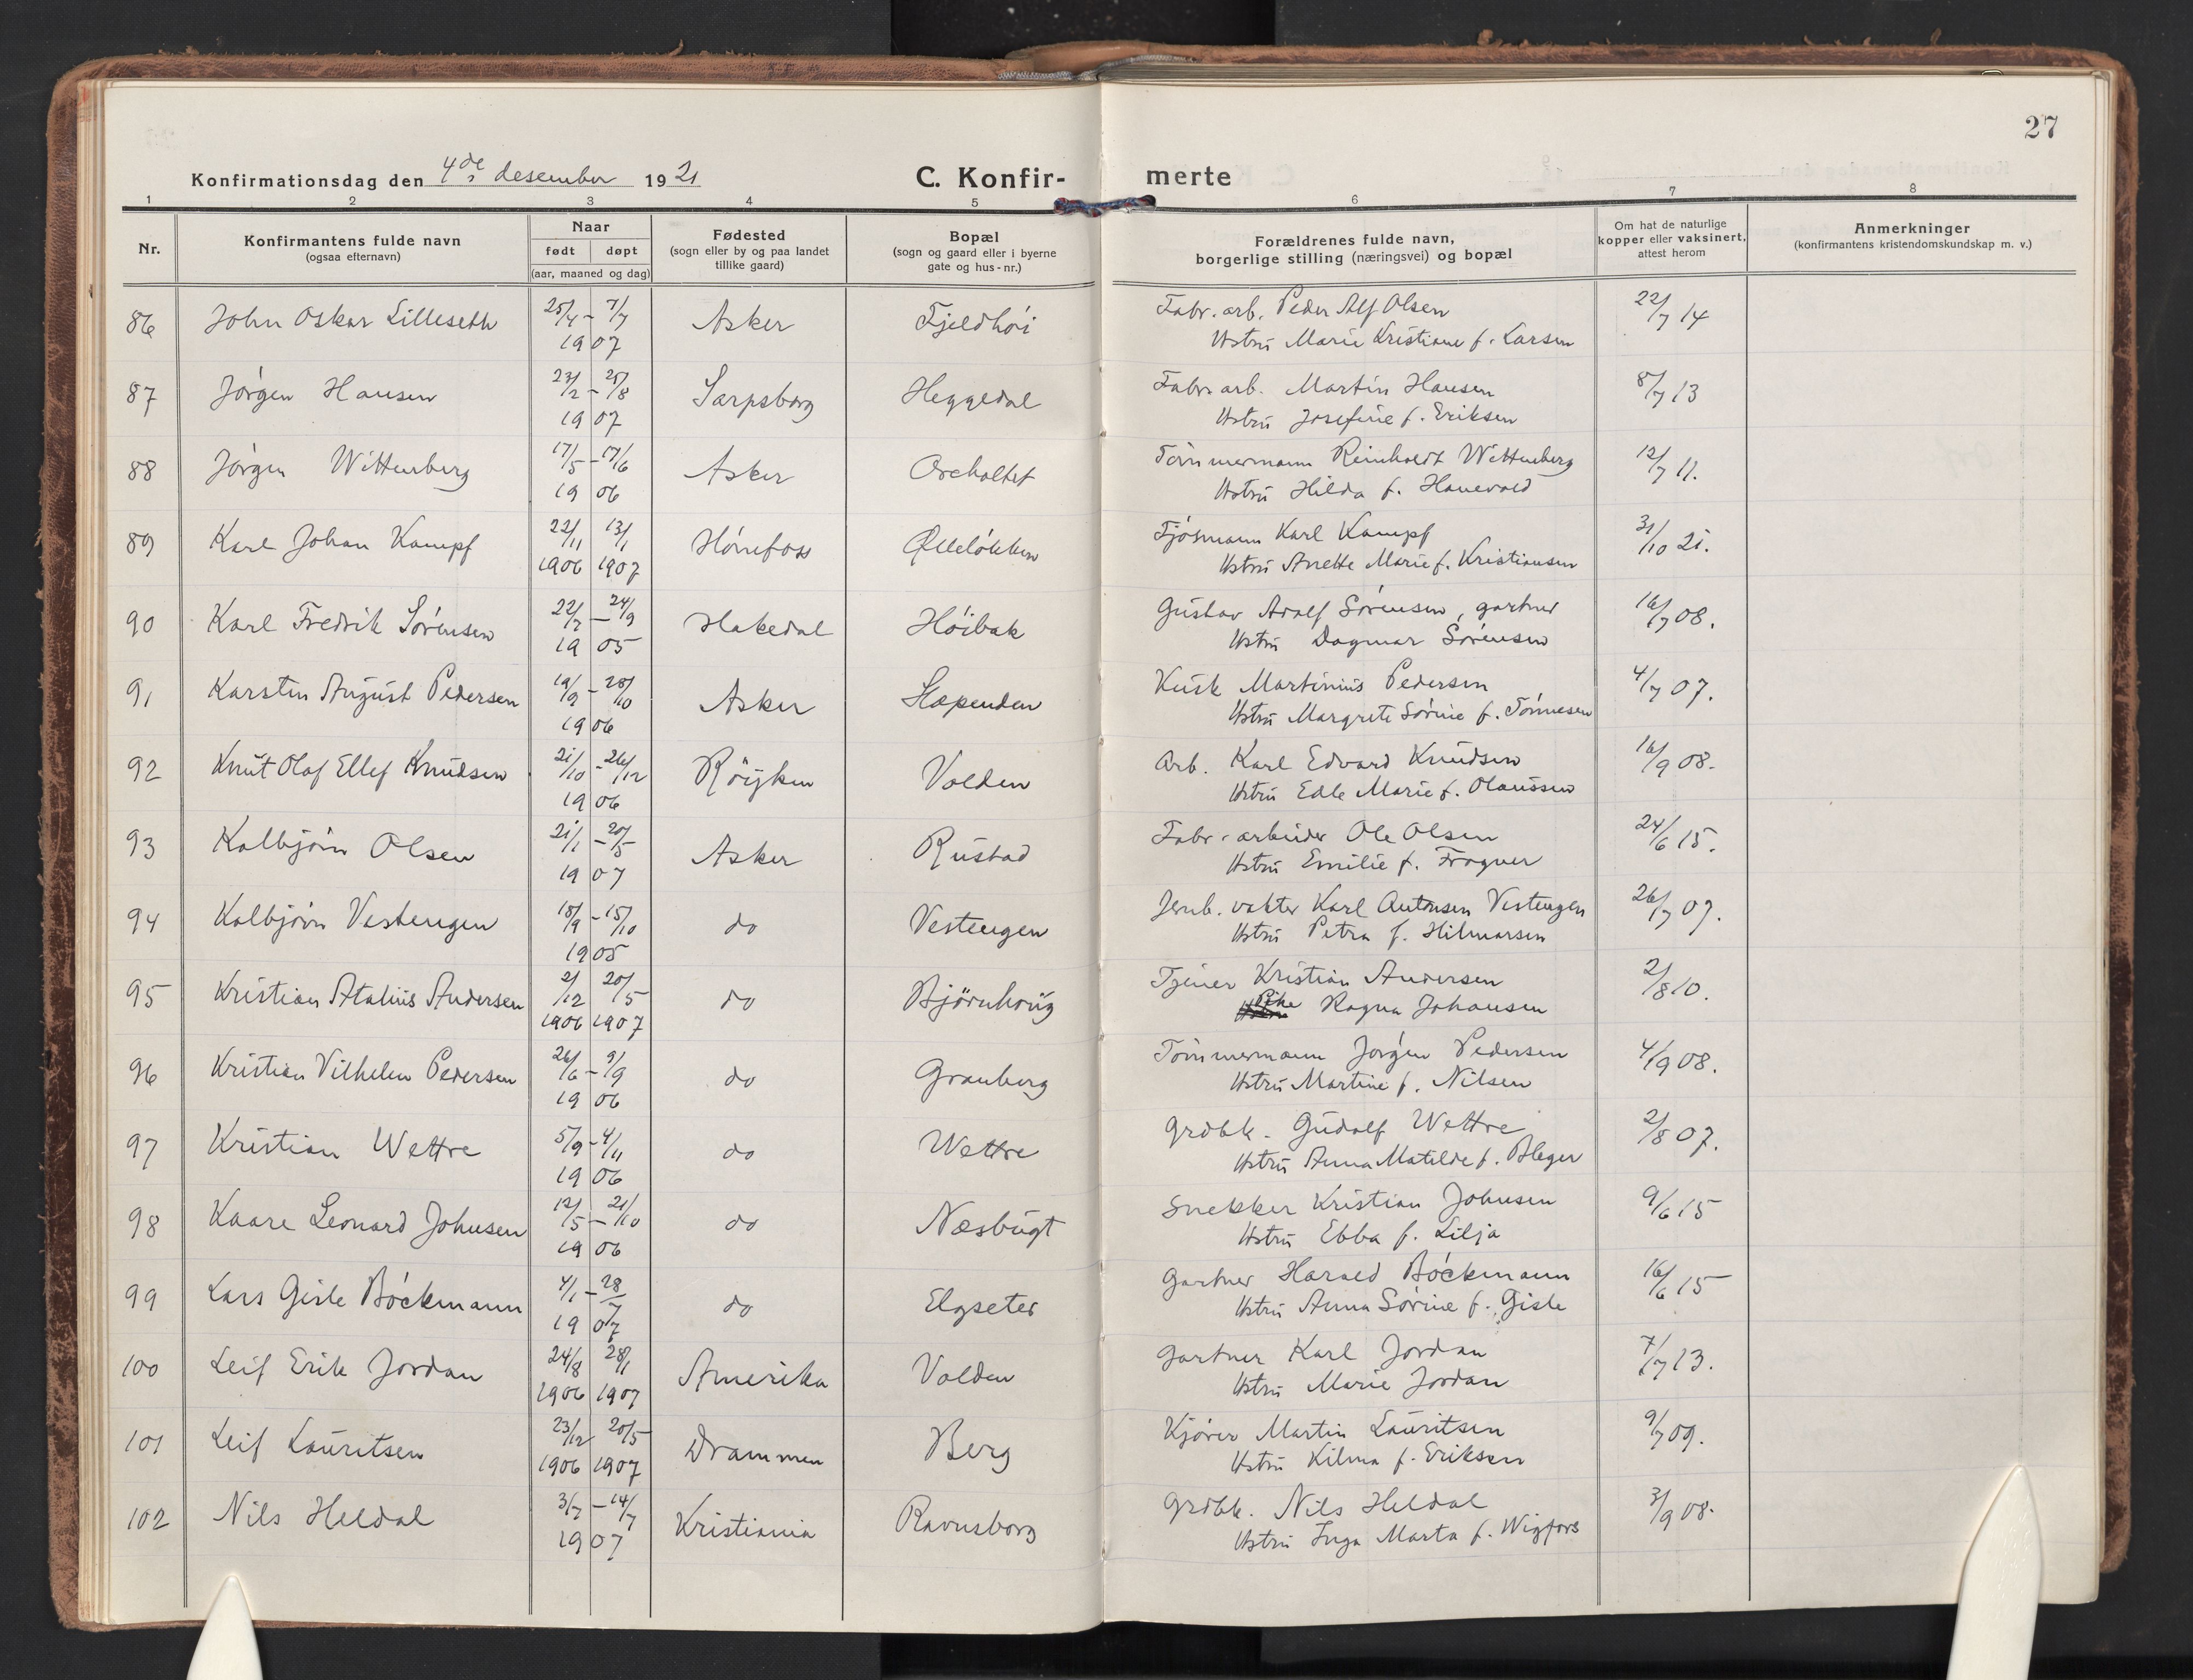 27
Konfirmationsdag den 4de desember 1921
C. Konfir- merte
1 2 3 4 5 6 7 8
Nr.
Konfirmantens fulde navn
(ogsaa efternavn)
Naar
født døpt
(aar, maaned og dag)
Fødested
(sogn eller by og paa landet
tillike gaard)
Bopæl
(sogn og gaard eller i byerne
gate og hus-nr.)
Forældrenes fulde navn,
borgerlige stilling (næringsvei) og bopæl
Om hat de naturlige
kopper eller vaksinert,
attest herom
Anmerkninger
(konfirmantens kristendomskundskap m. v.)
86 John Oskar Lilleseth 25/4 - 7/7 Asker Fjeldhöi Fabr. arb. Peder Alf Olsen 22/7 14
1907 Hstru Marie Kristiane f. Larsen
87 Jörgen Hansen 23/2 - 25/8 Sarpsborg Heggedal Fabr. arb. Martin Hansen 8/7 13
1907 Hstru Josefine f. Eriksen
88 Jörgen Wittenberg 17/5 - 17/6 Asker Oreholtet Tömmermann Reinholdt Wittenberg 12/7 11.
1906 Hstru Hilda f. Hanevold
89 Karl Johan Kampf 22/11 13/1 Hönefoss Ølleløkken Fjösmann Karl Kampf 31/10 21.
1906 1907 Hstru Anette Marie f. Kristiansen
90 Karl Fredrik Sörensen 22/7 - 24/9 Hakedal Höibak Gustav Adolf Sörensen, gartner 16/7 08.
1905 Hstru Dagmar Sörensen
91 Karsten August Pedersen 19/9 - 28/10 Asker Slæpenden Kusk Martinius Pedersen 4/7 07.
1906 Hstru Margrete Sörine f. Tönnesen
92 Knut Olaf Ellef Knudsen 21/10 - 26/12 Röyken Volden Arb. Karl Edvard Knudsen 16/9 08.
1906 Hstru Edle Marie f. Olaussen
93 Kolbjörn Olsen 21/1 - 20/5 Asker Rustad Fabr. arbeider Ole Olsen 24/6 15.
1907 Hstru Emilie f. Frogner
94 Kolbjörn Vestengen 18/9 - 15/10 do Vestengen Jernb. vokter Karl Antonsen Vestengen 26/7 07.
1905 Hstru Petra f. Hilmarsen
95 Kristian Atalius Andersen 2/12 20/5 do Björnhoug Tjener Kristian Andersen 2/8 10.
1906 1907 Pike Ragna Johansen
96 Kristian Vilhelm Pedersen 26/6 - 9/9 do Granberg Tömmermann Jörgen Pedersen 4/9 08.
1906 Hstru Martine f. Nilsen
97 Kristian Wettre 5/9 - 4/11 do Wettre Grdbk. Gudolf Wettre 2/8 07.
1906 Hstru Anna Matilde f. Bleger
98 Kaare Leonard Johnsen 12/5 - 21/10 do Næsbugt Snekker Kristian Johnsen 9/6 15
1906 Hstru Ebba f. Lilja
99 Lars Gisle Böckmann 4/1 - 28/7 do Elgseter Gartner Harald Böckmann 16/6 15
1907 Hstru Anna Sörine f. Gisle
100 Leif Erik Jordan 24/8 28/1 Amerika Volden Gartner Karl Jordan 7/7 13.
1906 1907 Hstru Marie Jordan
101 Leif Lauritsen 23/12 20/5 Drammen Berg Kjörer Martin Lauritsen 9/7 09.
1906 1907 Hstru Kilma f. Eriksen
102 Nils Heldal 3/7 - 14/7 Kristiania Ravnsborg Grdbk. Nils Heldal 3/9 08.
1907 Hstru Inga Marta f. Wigfors